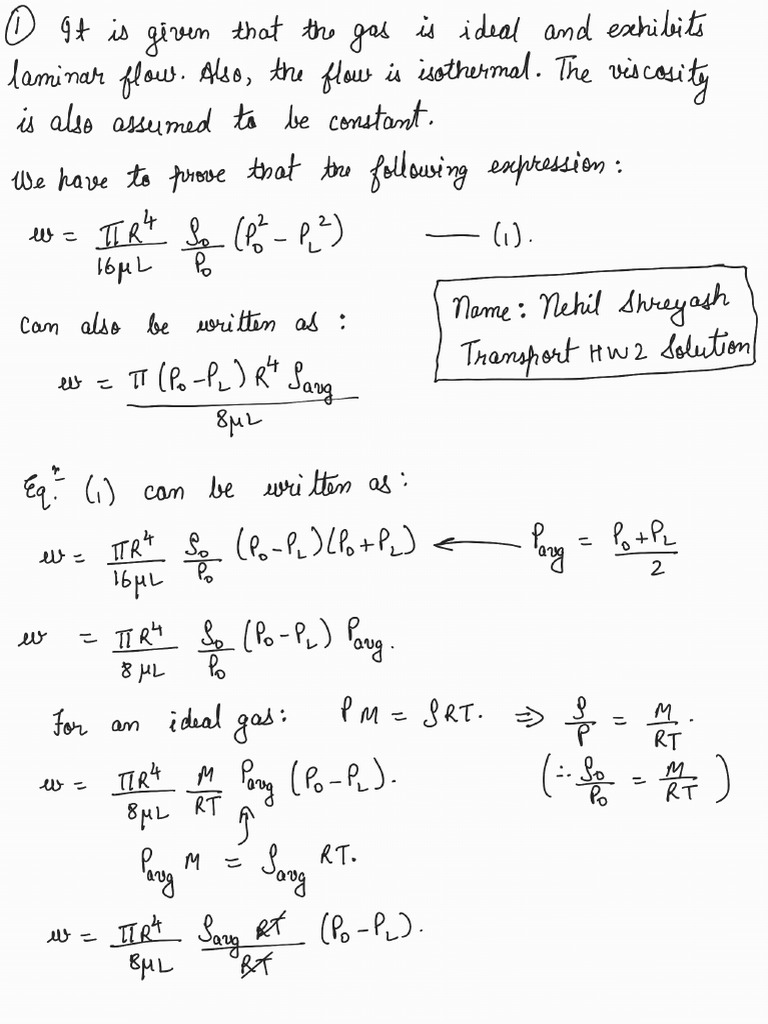 ① It is given that the gas is ideal and exhibits
laminar flow. Also, the flow is isothermal. The viscosity
is also assumed to be constant.
We have to prove that the following expression:
w = πR⁴/16μL ρ₀/P₀ (P₀² - P_L²) —— (1).
can also be written as:
w = π(P₀-P_L)R⁴ρavg/8μL
Name: Nehil Shreyash
Transport HW2 Solution
Eqⁿ. (1) can be written as:
w = πR⁴/16μL ρ₀/P₀ (P₀-P_L)(P₀+P_L) ← Pavg = P₀+P_L/2
w = πR⁴/8μL ρ₀/P₀ (P₀-P_L) Pavg.
For an ideal gas: PM = ρRT. ⇒ ρ/P = M/RT.
w = πR⁴/8μL M/RT Pavg (P₀-P_L). (∴ ρ₀/P₀ = M/RT)
Pavg M = ρavg RT.
w = πR⁴/8μL ρavg RT/RT (P₀-P_L).